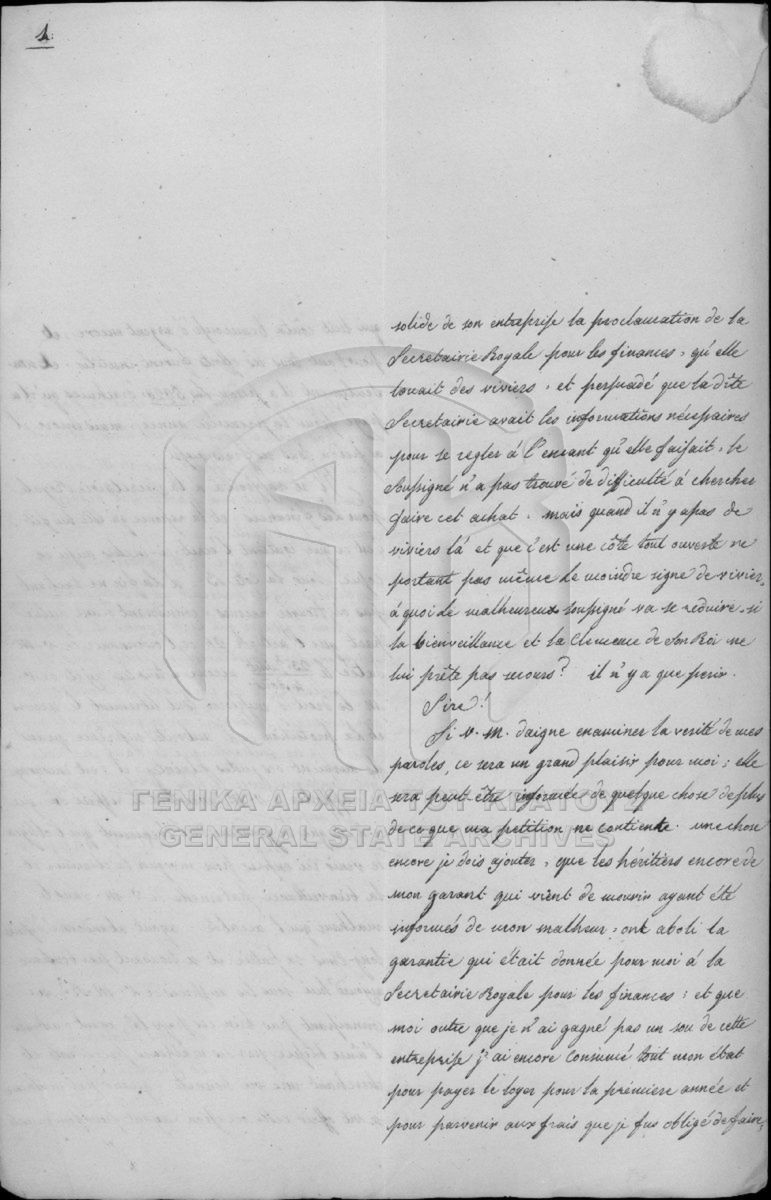 1.
solide de son entreprise la proclamation de la
Secretairie Royale pour les finances, qu'elle
louait des viviers, et persuadé que la dîte
Secretairie avait les informations nécessaires
pour se regler à l'encant qu'elle faisait, le
soussigné n'a pas trouvé de difficulté à chercher
faire cet achat. mais quand il n'y a pas de
viviers là et que c'est une côte tout ouverte ne
portant pas même le moindre signe de vivier,
à quoi le malheureux soussigné va se réduire, si
la bienveillance et la Clemence de Son Roi ne
lui prête pas secours? il n'y a que perir.
Sire!
Si V. M. daigne examiner la verité de mes
paroles, ce sera un grand plaisir pour moi; elle
sera peut-être informée de quelque chose de plus
de ce que ma petition ne contiente. une chose
encore je dois ajouter, que les héritiers encore de
mon garant qui vient de mourir ayant été
informés de mon malheur, ont aboli la
garantie qui était donnée pour moi à la
Secretairie Royale pour les finances; et que
moi outre que je n'ai gagné pas un sou de cette
entreprise j'ai encore consumé tout mon état
pour payer le loyer pour la première année et
pour parvenir aux frais que je fus obligé de faire,
ΓΕΝΙΚΑ ΑΡΧΕΙΑ ΤΟΥ ΚΡΑΤΟΥΣ
GENERAL STATE ARCHIVES